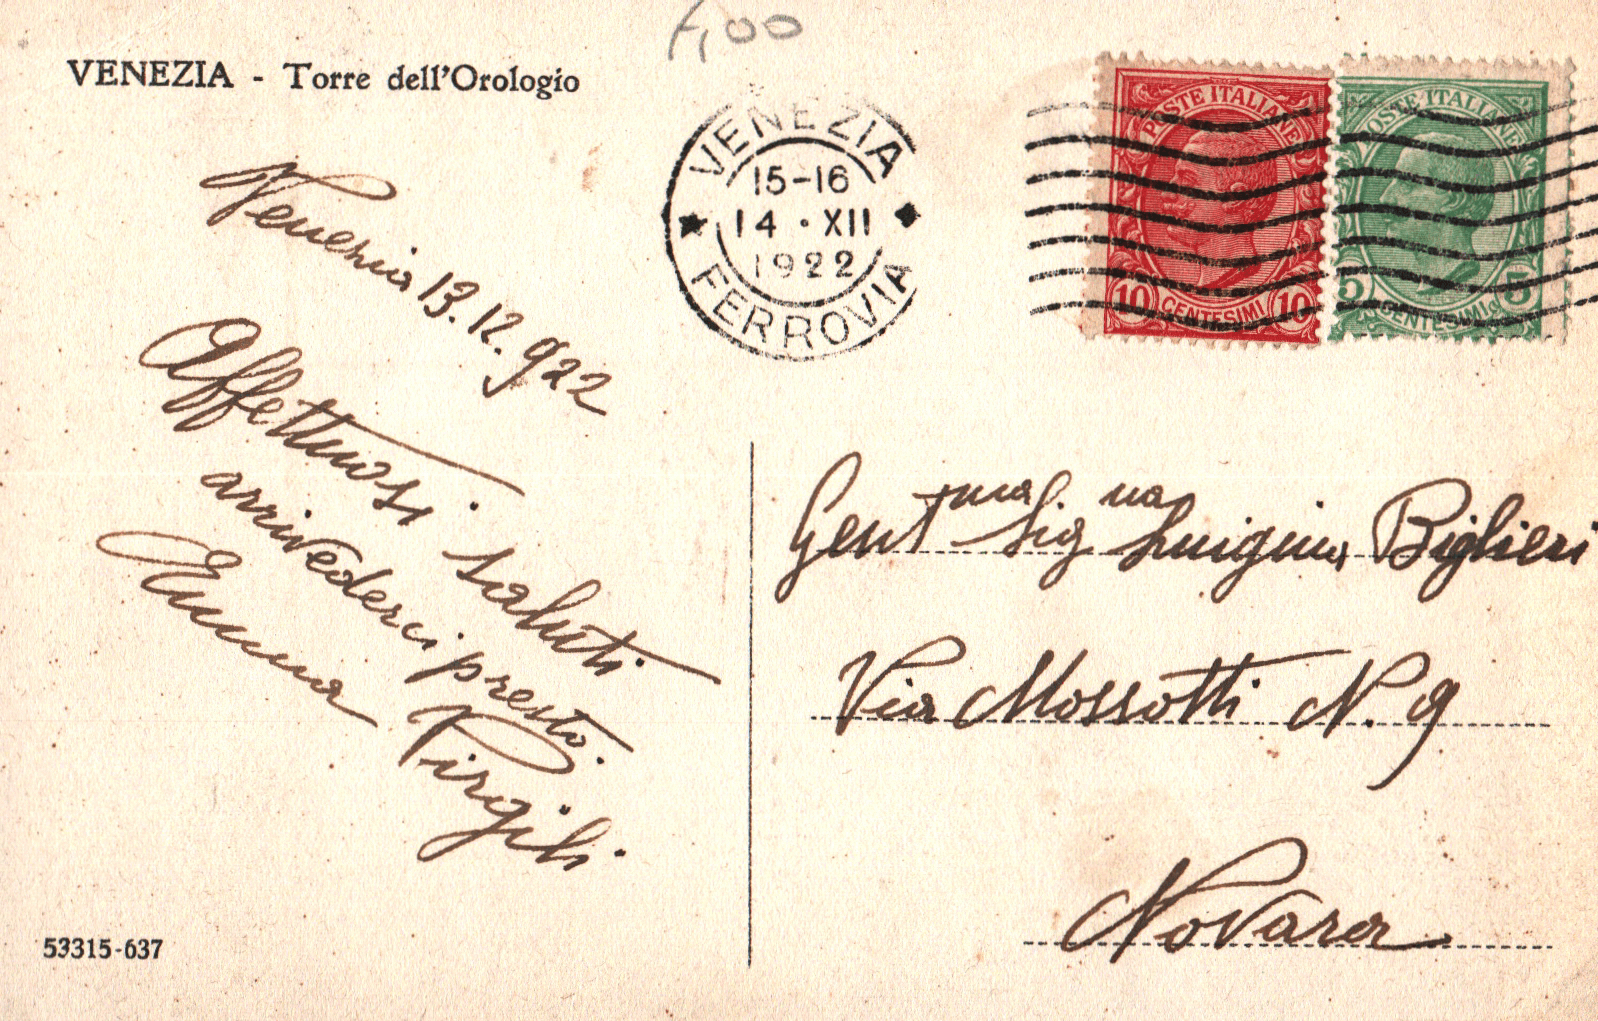 VENEZIA - Torre dell'Orologio
VENEZIA
15-16
14 · XII
1922
FERROVIA
POSTE ITALIANE
10 CENTESIMI 10
POSTE ITALIANE
5 CENTESIMI 5
Venezia 13.12.922
Affettuosi saluti
arrivederci presto.
Emma Virgili
Gent ma Sig na Luigina Biglieri
Via Mossotti N. 9
Novara
53315-637